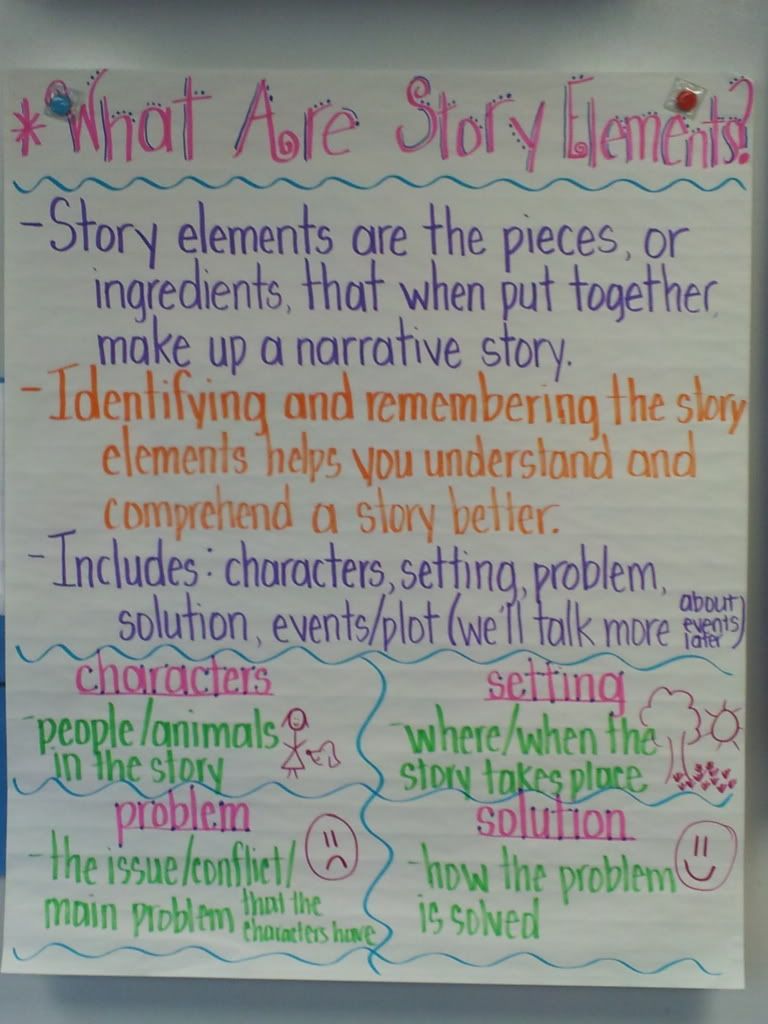 * What Are Story Elements?
- Story elements are the pieces, or
ingredients, that when put together,
make up a narrative story.
- Identifying and remembering the story
elements helps you understand and
comprehend a story better.
- Includes: characters, setting, problem,
solution, events/plot (we'll talk more about events later)
characters
- people/animals
in the story
setting
- where/when the
story takes place
problem
- the issue/conflict/
main problem that the characters have
solution
- how the problem
is solved